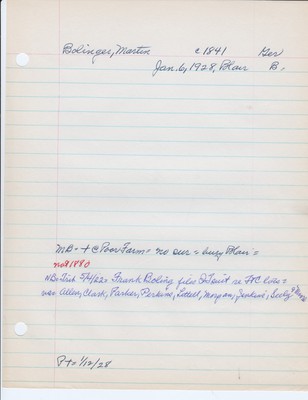 Bolinger, Martin c1841 Ger
Jan. 6, 1928, Blair B.
MB = + @ Poor Farm = no sur = bury Blair =
not 1880
NB = Trib 5/4/22 = Frank Boling files QTsuit re F+C lots =
vs = Allen, Clark, Parker, Perkins, Littell, Morgan, Jenkins, Seely
P+ = 1/12/28